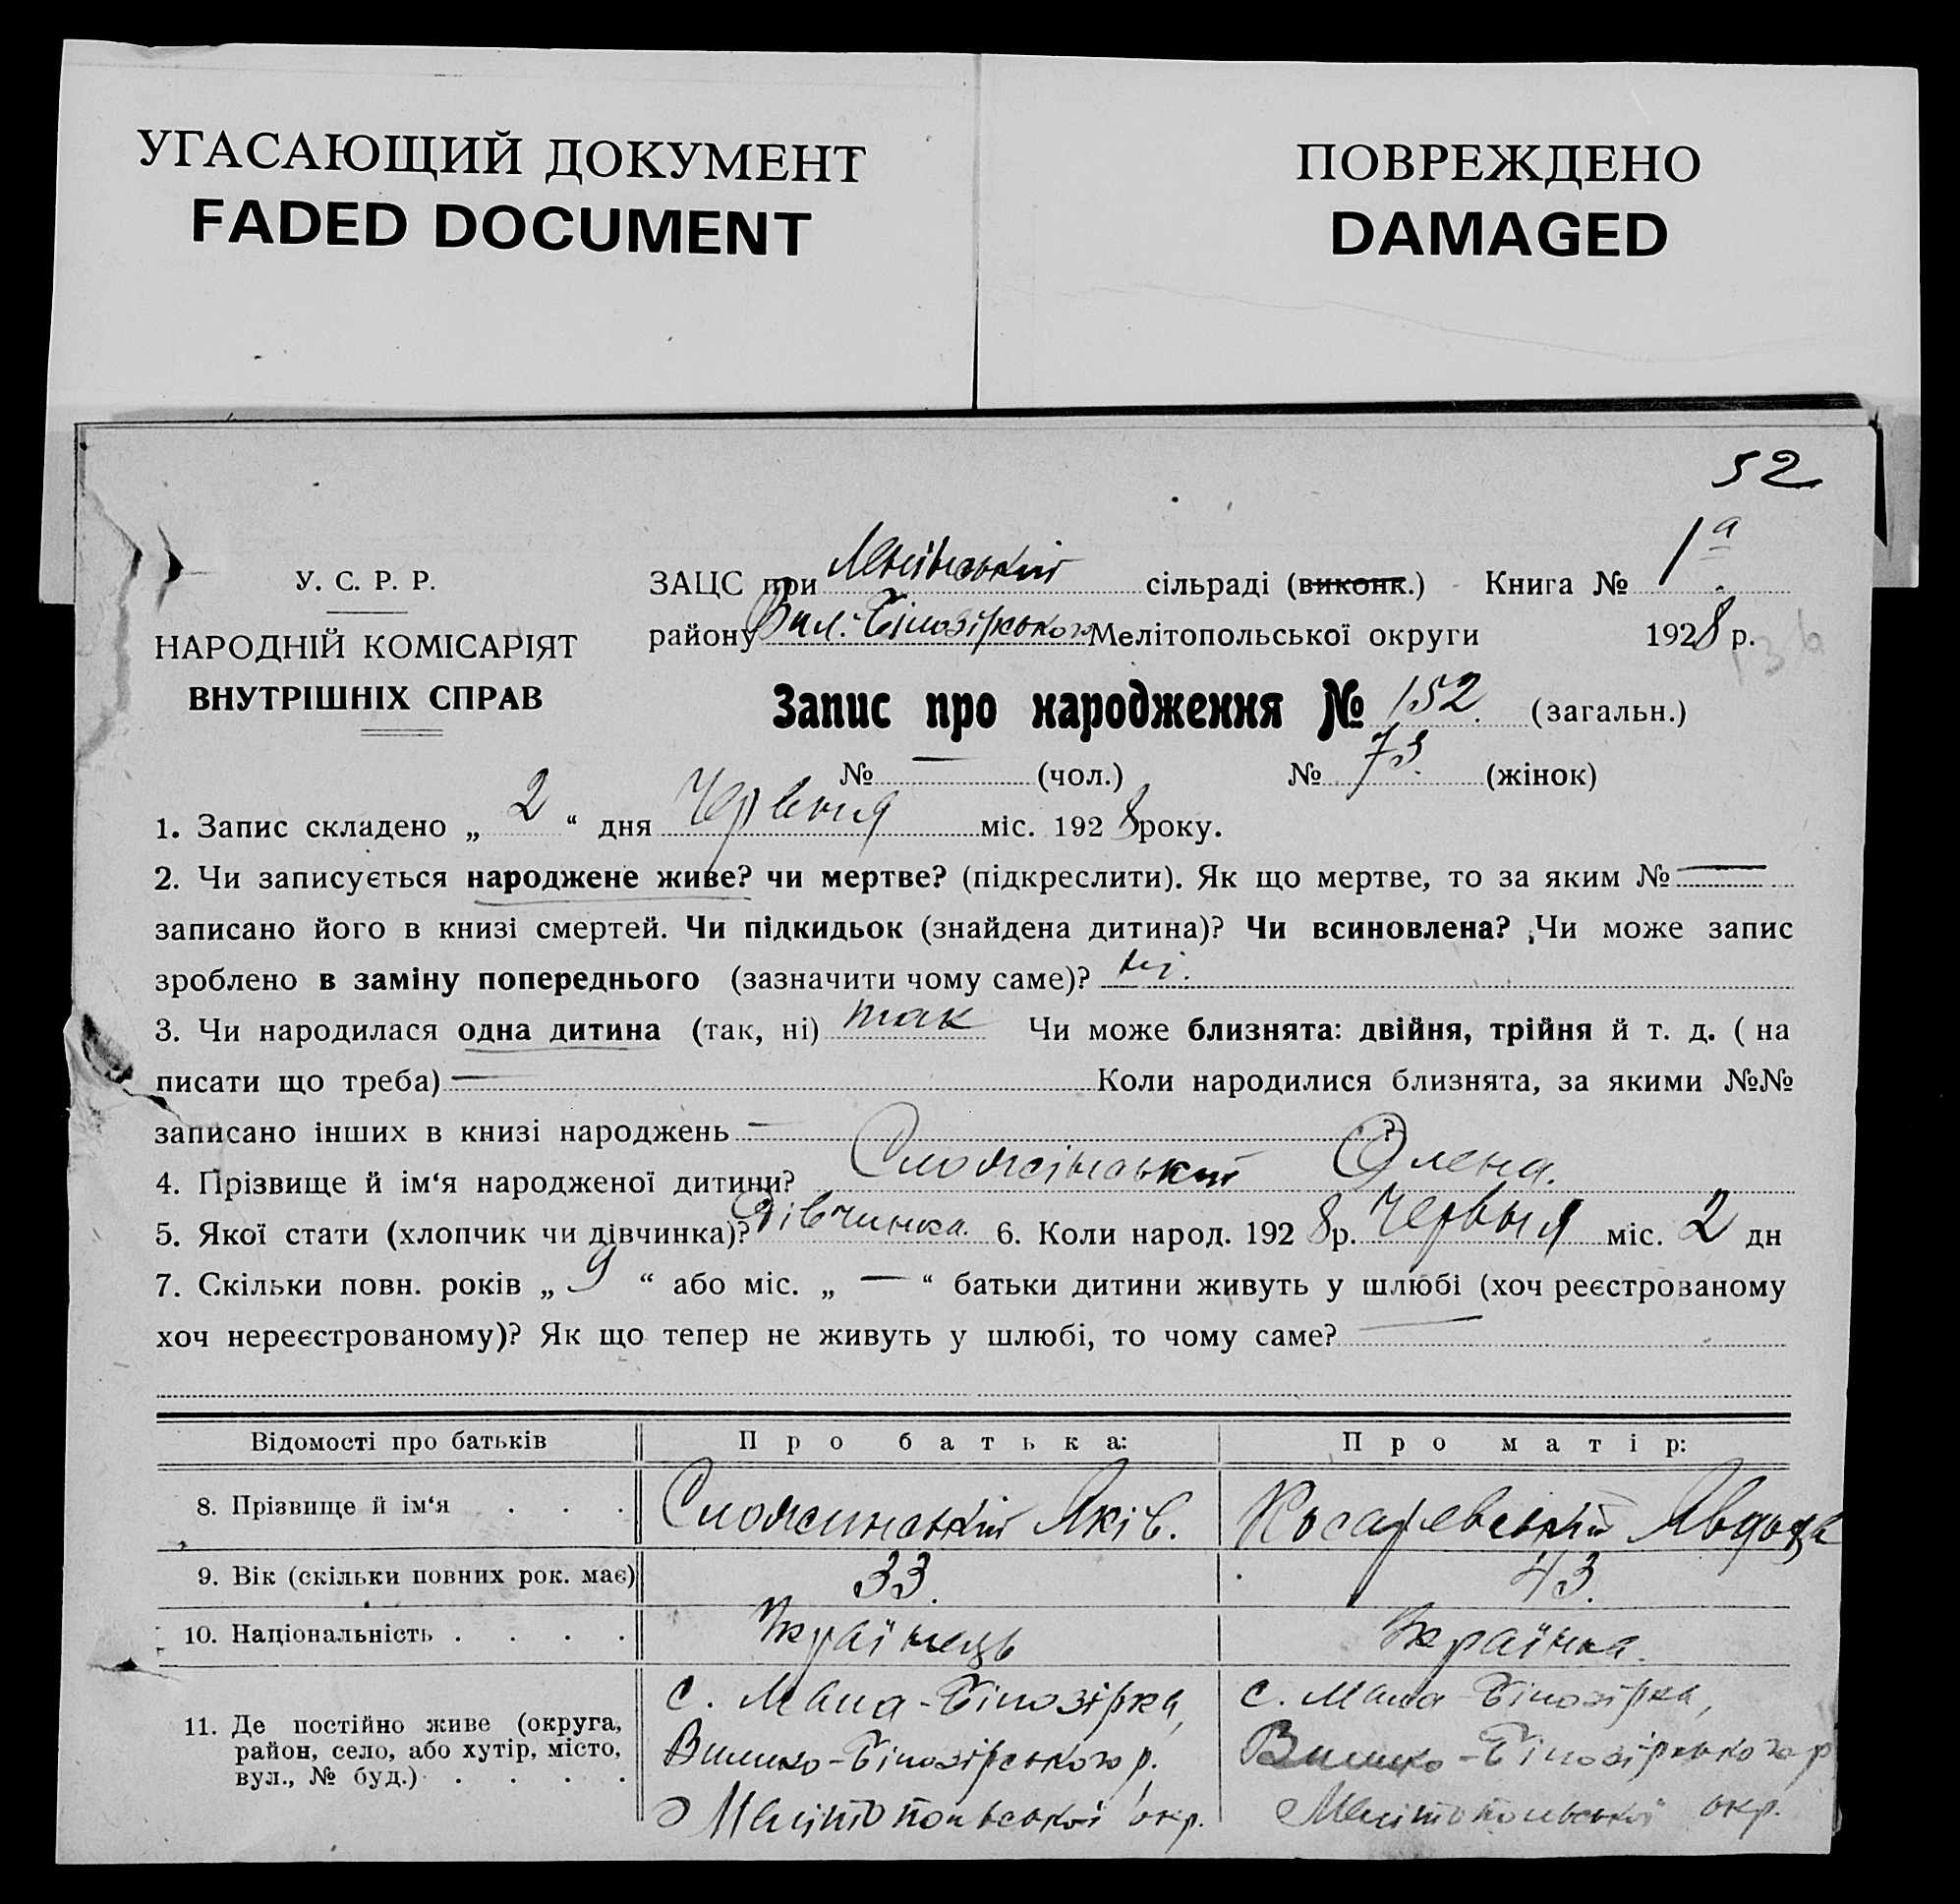 УГАСАЮЩИЙ ДОКУМЕНТ
FADED DOCUMENT
ПОВРЕЖДЕНО
DAMAGED
52
У. С. Р. Р.
НАРОДНІЙ КОМІСАРІЯТ
ВНУТРІШНІХ СПРАВ
ЗАЦС при сільраді (виконк.) Книга № 1а
району Вел.-Білозірського Мелітопольської округи 1928 р.
136
Запис про народження № 152 (загальн.)
№ — (чол.) № 73 (жінок)
1. Запис складено „ 2 “ дня Червня міс. 1928 року.
2. Чи записується народжене живе? чи мертве? (підкреслити). Як що мертве, то за яким № —
записано його в книзі смертей. Чи підкидьок (знайдена дитина)? Чи всиновлена? Чи може запис
зроблено в заміну попереднього (зазначити чому саме)? ні.
3. Чи народилася одна дитина (так, ні) так Чи може близнята: двійня, трійня й т. д. ( на
писати що треба) — Коли народилися близнята, за якими №№
записано інших в книзі народжень — ?
4. Прізвище й ім‘я народженої дитини? Сможінський Олена.
5. Якої стати (хлопчик чи дівчинка)? Дівчинка. 6. Коли народ. 1928 р. Червня міс. 2 дн
7. Скільки повн. років „ 9 “ або міс. „ — “ батьки дитини живуть у шлюбі (хоч реєстрованому
хоч нереєстрованому)? Як що тепер не живуть у шлюбі, то чому саме? —
Відомості про батьків Про батька: Про матір:
8. Прізвище й ім‘я . . . Яків. Косаревський Явдоха
9. Вік (скільки повних рок. має) 33. 43.
10. Національність . . . . Українець Українка.
11. Де постійно живе (округа,
район, село, або хутір, місто,
вул., № буд.) . . . .
с. Мала-Білозірка,
Велико-Білозірського р.
Мелітопольської окр.
с. Мала-Білозірка,
Велико-Білозірського р
Мелітопольської окр.